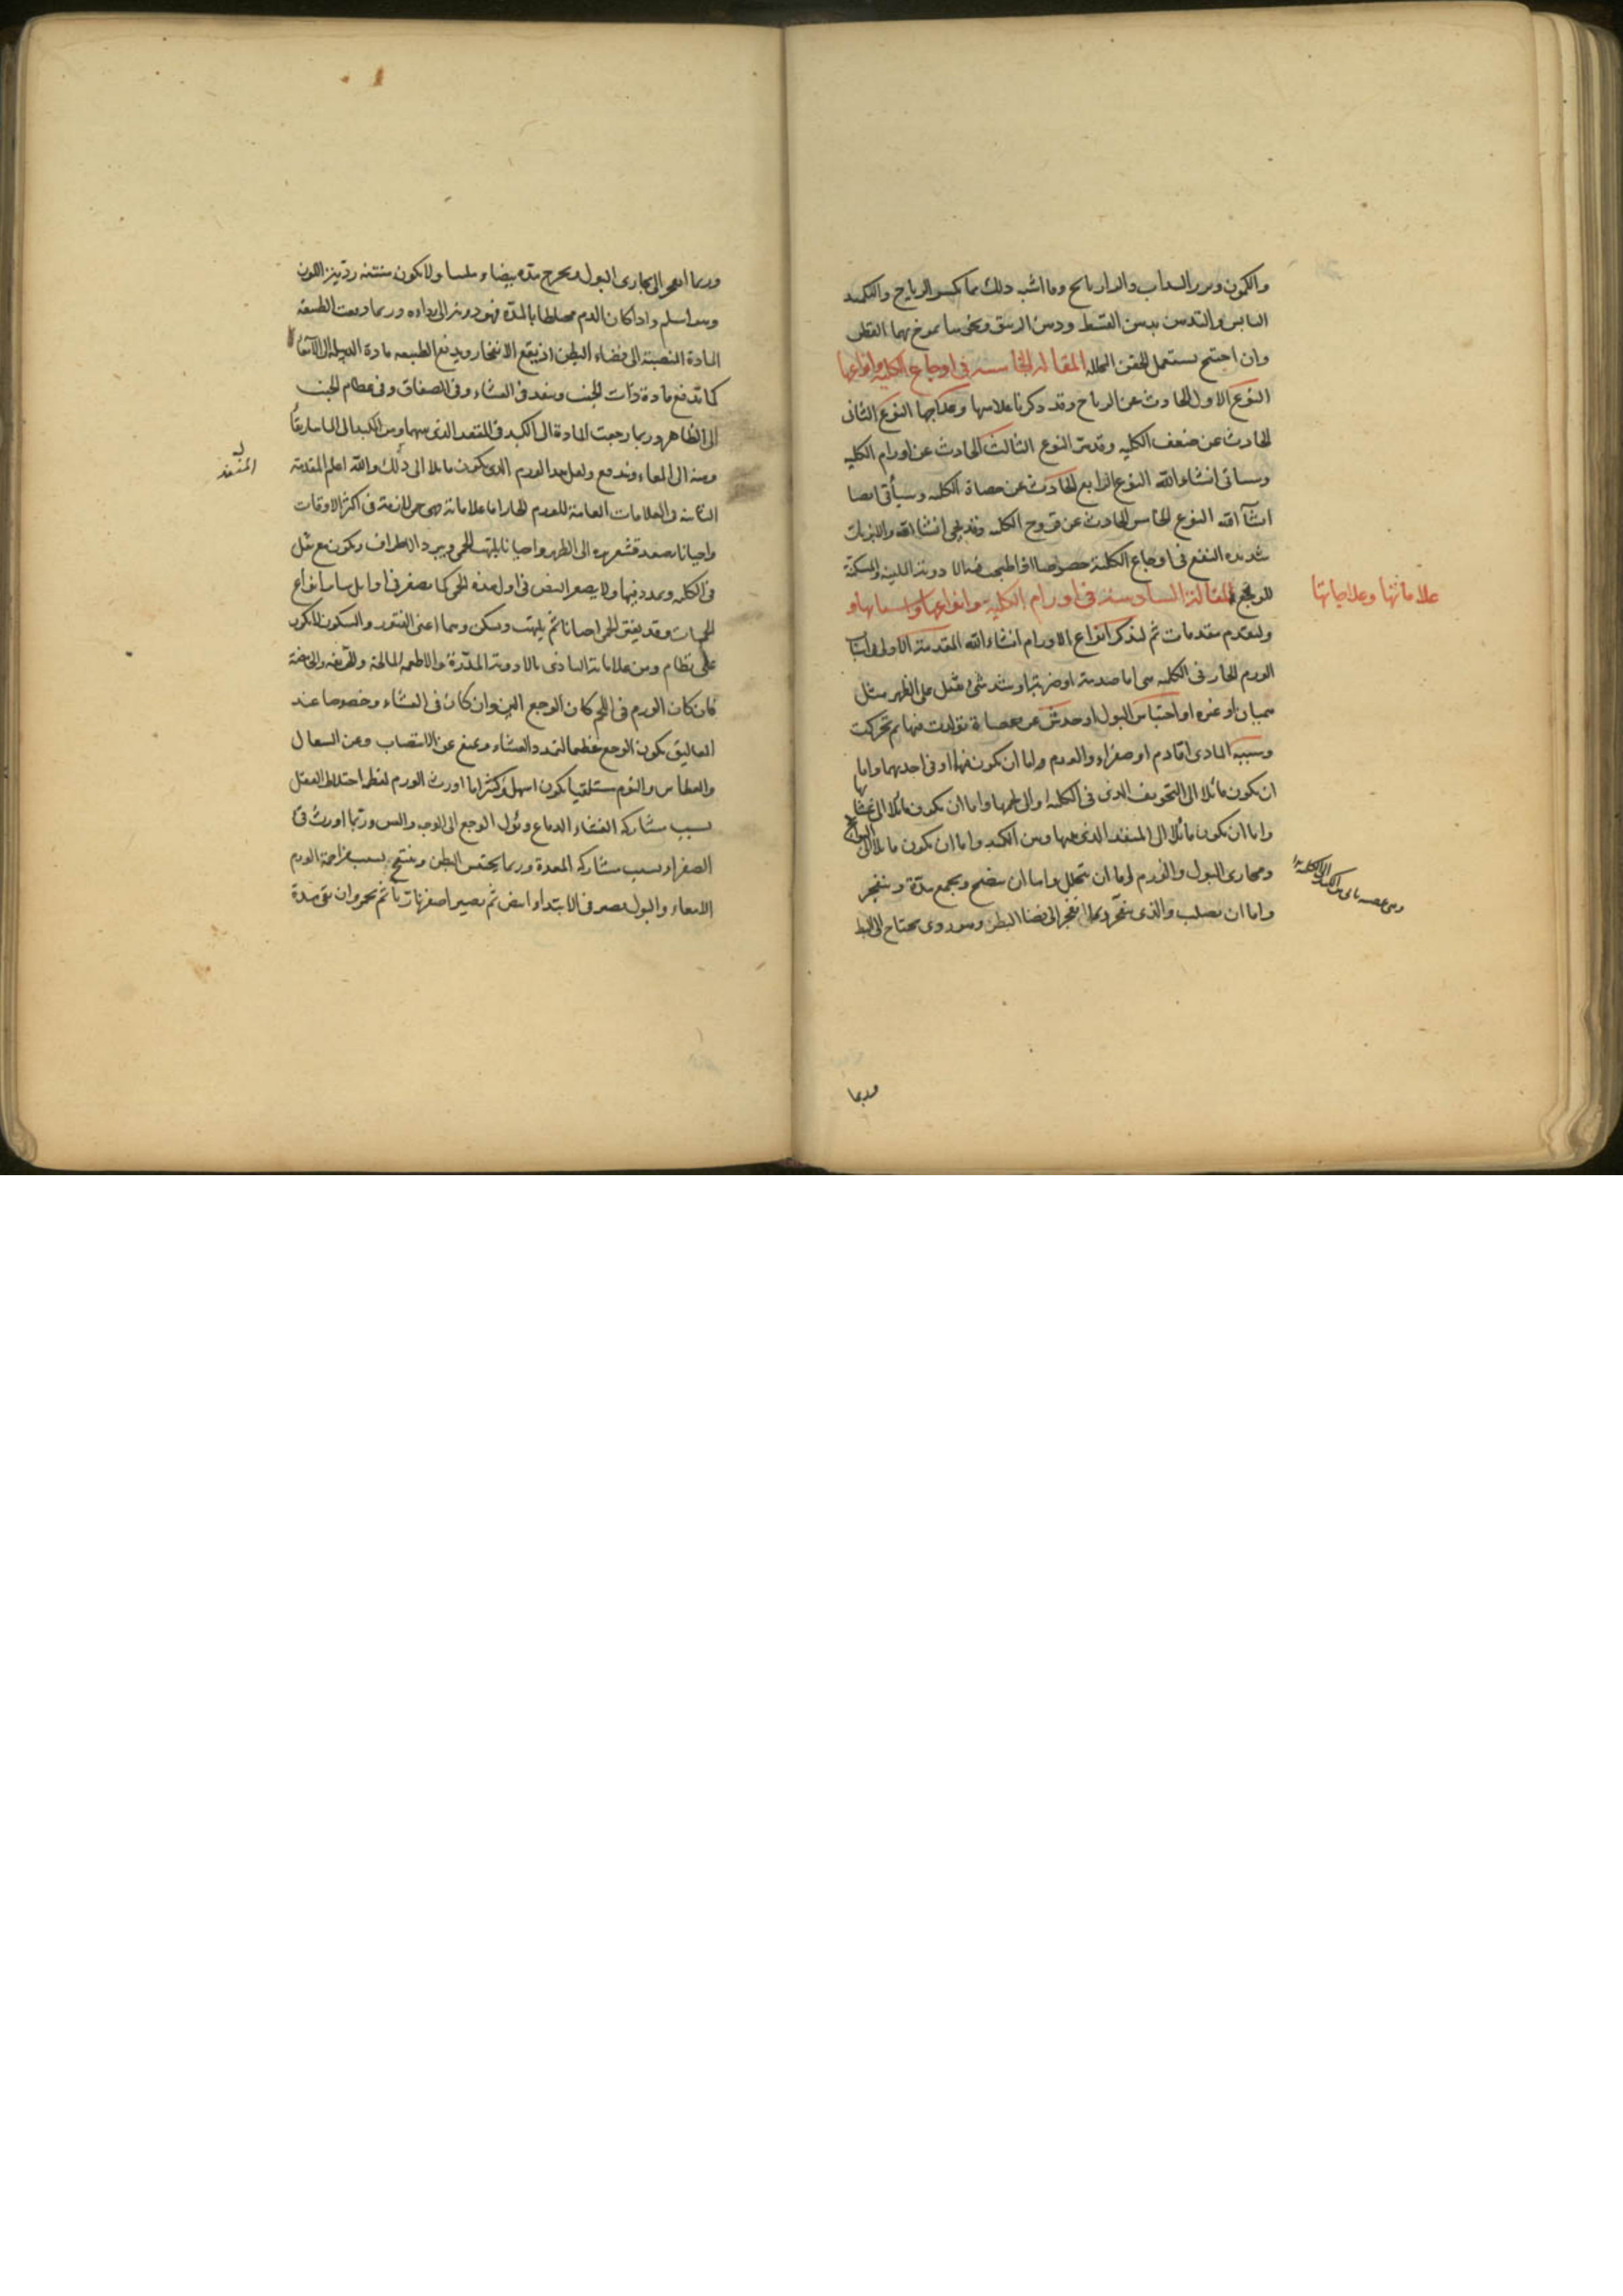 والكمون وبزر السداب والدار وما اشبه ذلك مما يكسر الرياح والتكميد
اليابس والتدهين بدهن القسط ودهن الزنبق ونحوهما يمرخ بهما القطن
وان احتيج يستعمل الحقن المحللة المقالة الخامسة في اوجاع الكلية وانواعها
النوع الاول الحادث عن الرياح وقد ذكرنا علامتها وعلاجها النوع الثاني
الحادث عن ضعف الكلية وقد مر النوع الثالث الحادث عن اورام الكلية
وسياتي انشاء الله النوع الرابع الحادث عن حصاة الكلية وسيأتي ايضا
انشآ الله النوع الخامس الحادث عن قروح الكلية وقد يجي انشا الله والابزنات
شديدة النفع في اوجاع الكلية خصوصا اذا طبخ فيها الادوية الملينة والمسكنة
للوجع المقالة السادسة في اورام الكلية وانواعها واسبابها و
علاماتها وعلاجاتها
ولنقدم مقدمات ثم لنذكر انواع الاورام انشاء الله المقدمة الاولى اسباب
الورم الحار في الكلية اما صدمة او ضربة او شد شئ مثقل على الظهر مثل
هميان او غيره او احتباس البول او حدث عن حصاة تولدت فيها ثم تحركت
وسببه المادي اما دم او صفراء والورم اما ان يكون فيهما او في احديهما واما
ان يكون مائلا الى التجويف الذي في الكلية او الى لحمها واما ان يكون مائلا الى غشائها
واما ان يكون مائلا الى المنفذ الذي بينها وبين الكبد واما ان يكون مائلا الى البرابخ
ومجاري البول والورم اما ان يتحلل واما ان ينضج ويجمع مدة وينفجر
واما ان يصلب والذي ينفجر ربما انفجر الى فضا البطن وهو ردي يحتاج الى البط
وربما
وربما انفجر الى مجاري البول ويخرج مدة بيضاء ملساء ولا يكون منتنة ردية اللون
وهو اسلم واذا كان الدم مختلطا بالمدة فهو دونه في الرداءة وربما دفعت الطبيعة
المادة المنصبة الى فضاء البطن اذ يقع الانفجار ويدفع الطبيعة مادة الدبيلة الى
كما تدفع مادة ذات الجنب وينفذ في الغشاء وفي الصفاق وفي عظام الجنب
الى الظاهر وربما رجعت المادة الى الكبد في المنفذ الذي بينهما ومن الكبد الى الماساريقا
المنفذ
ومنه الى المعاء وتندفع ولعل هذا الورم الذي يكون مايلا الى ذلك والله اعلم المقدمة
الثانية في العلامات العامة للورم الحار اما علاماته فهي حمى لازمة في اكثر الاوقات
واحيانا يصعد قشعريرة الى الظهر واحيانا يلتهب الحمى ويبرد الاطراف ويكون مع ثقل
في الكلية وتمدد فيها ولا يصغر النبض في اول هذه الحمى كما يصغر في اوايل ساير انواع
الحميات وقد يفتر الحمى احيانا ثم يلتهب ويسكن وهما اعني الفتور والسكون لا يكون
على نظام ومن علاماته التاذي بالادوية المدرة والاطعمة المالحة والحريفة والحامضة
فان كان الورم في اللحم كان الوجع الين وان كان في الغشاء وخصوصا عند
المعاليق يكون الوجع عظيما لتمدد الغشاء ويمنع عن الانتصاب وعن السعال
والعطاس والنوم مستلقيا يكون اسهل وكثيرا ما اورث الورم لعظمه اختلاط العقل
بسبب مشاركة الغشاء الدماغ ونزل الوجع الى الوجه والعين وربما اورث قئ
الصفراء بسبب مشاركة المعدة وربما يحتبس البطن وينتفخ بسبب مزاحمة الورم
الامعاء والبول يصير في الابتداء ابيض ثم يصير اصفر ناريا ثم يحمر وان بقي مدة